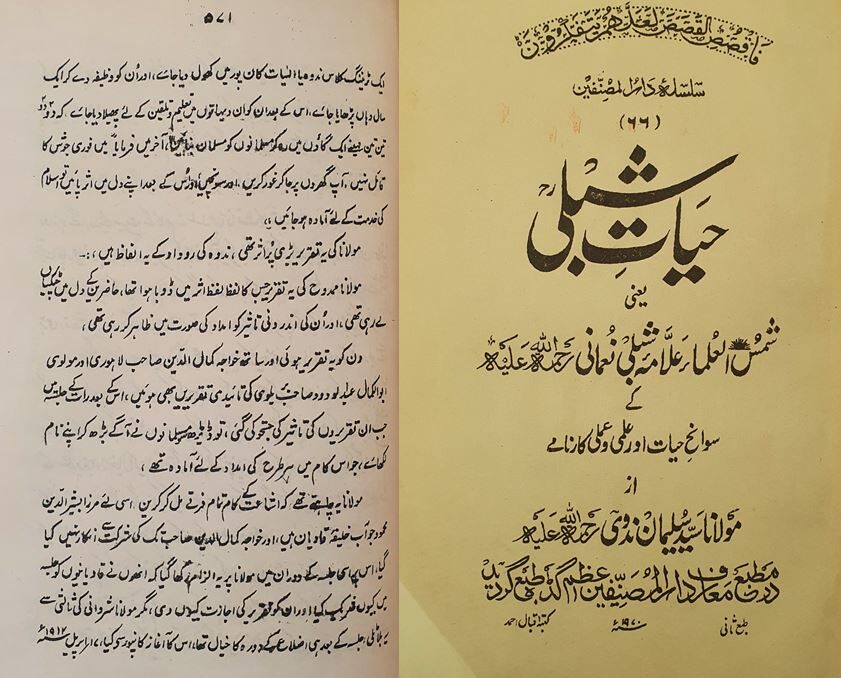 ۵۷۱
ایک ٹریننگ کلاس ندوہ یا الٰہیات کان پور میں کھول دیا جائے، اور اُن کو وظیفہ دے کر ایک
سال وہاں پڑھایا جائے، اس کے بعد ان کو ان دیہاتوں میں تعلیم و تلقین کے لئے پھیلا دیا جائے، کہ دو دو
تین تین مہینے ایک گاؤں میں رہ کر مسلمانوں کو مسلمان بنائیں، آخر میں فرمایا میں فوری جوش کا
قائل نہیں، آپ گھروں پر جا کر غور کریں، اور سونچیں اور اُس کے بعد اپنے دل میں اثر پائیں تو اسلام
کی خدمت کے لئے آمادہ ہو جائیں،،
مولانا کی یہ تقریر بڑی پُر اثر تھی، ندوہ کی روداد کے یہ الفاظ ہیں،:۔
مولانا ممدوح کی یہ تقریر جس کا لفظ لفظ اثر میں ڈوبا ہوا تھا، حاضرین کے دل میں چٹکیاں
لے رہی تھی، اور اُن کی اندرونی تاثیر کو امداد کی صورت میں ظاہر کر رہی تھی،
دن کو یہ تقریر ہوئی اور ساتھ خواجہ کمال الدین صاحب لاہوری اور مولوی
ابوالکمال عبدالودود صاحب بریلوی کی تائیدی تقریریں بھی ہوئیں، اس کے بعد رات کے جلسہ میں
جب ان تقریروں کی تاثیر کی جستجو کی گئی، تو ڈیڑھ سو مسلمانوں نے آگے بڑھ کر اپنے نام
لکھائے، جو اس کام میں ہر طرح کی امداد کے لئے آمادہ تھے،
مولانا یہ چاہتے تھے کہ اشاعت کے کام تمام فرقے مل کر کریں، اسی لئے مرزا بشیر الدین
محمود جو آب خلیفہ قادیان ہیں، اور خواجہ کمال الدین صاحب تک کی شرکت سے انکار نہیں کیا
گیا، اس پر اسی جلسہ کے دوران میں مولانا پر یہ الزام رکھا گیا کہ انھوں نے قادیانیوں کو جلسہ
میں کیوں شریک کیا، اور ان کو تقریر کی اجازت کیوں دی، مگر مولانا شروانی کی ثالثی سے
یہ بلا ٹلی، جلسہ کے بعد ہی اضلاع کے دورہ کا خیال تھا، اس کا آغاز کانپور سے کیا، ۱۷ اپریل ۱۹۱۲ء
فَاقْصُصِ الْقَصَصَ لَعَلَّهُمْ يَتَفَكَّرُونَ
سلسلۂ دار المصنفین
(۶۶)
حیاتِ شبلیؒ
یعنی
شمس العلماء علامہ شبلی نعمانی رحمۃ اللہ علیہ
کے
سوانح حیات اور علمی و عملی کارنامے
از
مولانا سید سلیمان ندوی رحمۃ اللہ علیہ
در مطبع معارف دار المصنفین اعظم گڈھ طبع گردید
طبع ثانی ۱۹۷۰ء کتبۂ اقبال احمد